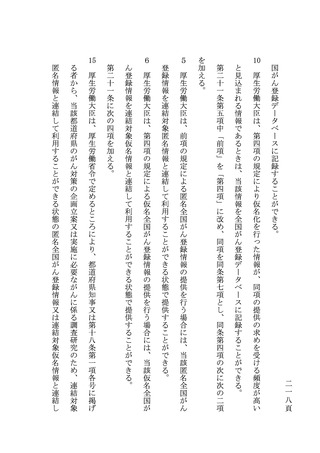 二一八頁
国がん登録データベースに記録することができる。
10 厚生労働大臣は、第四項の規定により仮名化を行った情報が、同項の提供の求めを受ける頻度が高い
と見込まれる情報であるときは、当該情報を全国がん登録データベースに記録することができる。
第二十一条第五項中「前項」を「第四項」に改め、同項を同条第七項とし、同条第四項の次に次の二項
を加える。
5 厚生労働大臣は、前項の規定による匿名全国がん登録情報の提供を行う場合には、当該匿名全国がん
登録情報を連結対象匿名情報と連結して利用することができる状態で提供することができる。
6 厚生労働大臣は、第四項の規定による仮名全国がん登録情報の提供を行う場合には、当該仮名全国が
ん登録情報を連結対象仮名情報と連結して利用することができる状態で提供することができる。
第二十一条に次の四項を加える。
15 厚生労働大臣は、厚生労働省令で定めるところにより、都道府県知事又は第十八条第一項各号に掲げ
る者から、当該都道府県のがん対策の企画立案又は実施に必要ながんに係る調査研究のため、連結対象
匿名情報と連結して利用することができる状態の匿名全国がん登録情報又は連結対象仮名情報と連結し